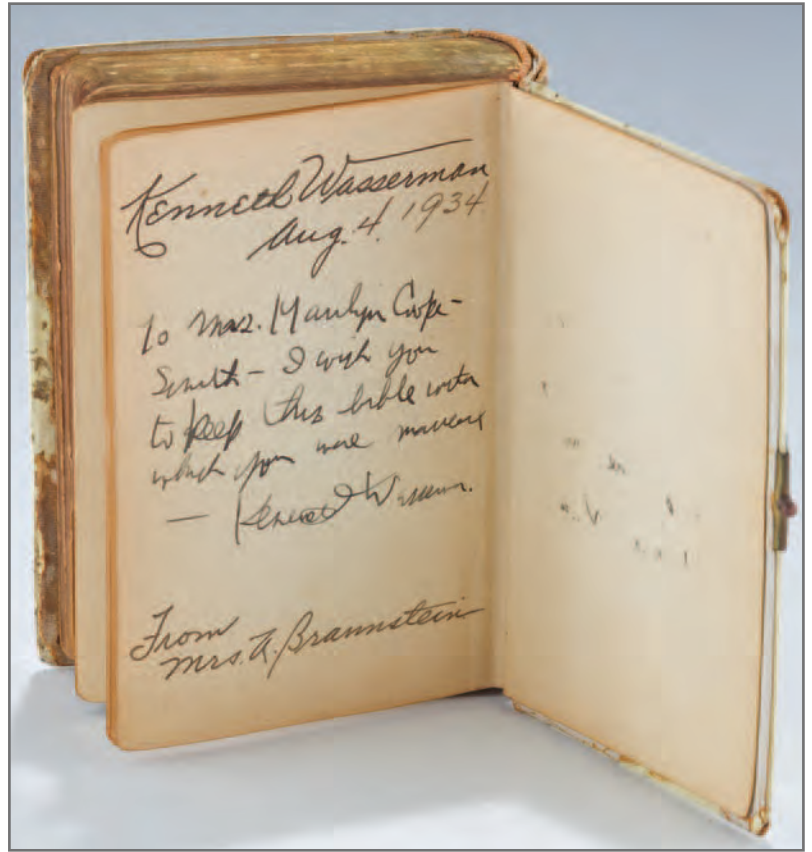 Kenneth Wasserman
Aug. 4. 1934
To Mrs. Marilyn Cope-
Smith – I wish you
to keep this bible with
which you were married
— Kenneth Wasserman.
From
Mrs. A. Braunstein